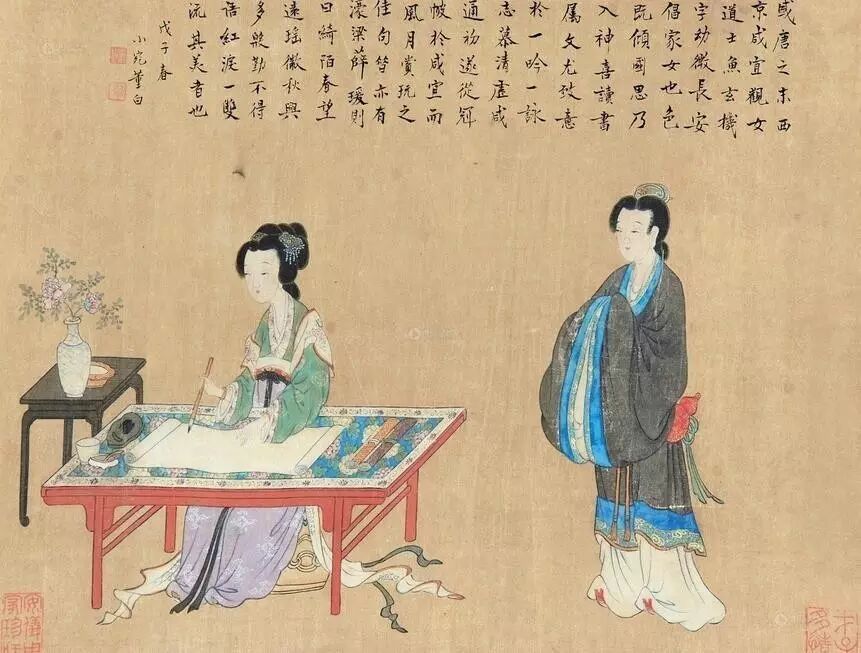 或唐之末西
京咸宜觀女
道士魚玄機
字幼微長安
倡家女也色
既傾國思乃
入神喜讀書
属文尤致意
於一吟一詠
志慕清虛咸
通初遂從冠
帔於咸宜而
風月賞玩之
佳句皆亦有
濠梁薛瑗則
曰綺陌春望
遠瑤徽秋興
多殷勤不得
語紅淚一雙
流其美者也
戊子春
小宛董白